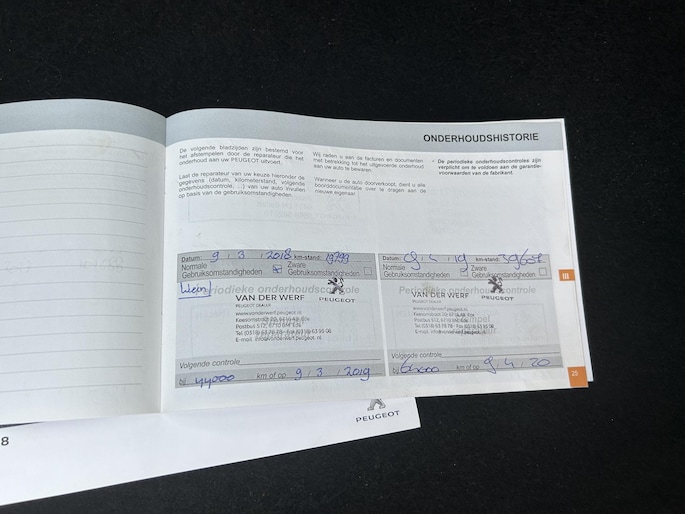 ONDERHOUDSHISTORIE
De volgende bladzijden zijn bestemd voor
het afstempelen door de reparateur die het
onderhoud aan uw PEUGEOT uitvoert.
Laat de reparateur van uw keuze hieronder de
gegevens (datum, kilometerstand, volgende
onderhoudscontrole, ...) van uw auto invullen
op basis van de gebruiksomstandigheden.
Wij raden u aan de facturen en documenten
met betrekking tot het uitgevoerde onderhoud
aan uw auto te bewaren.
Wanneer u de auto doorverkoopt, dient u alle
boorddocumentatie over te dragen aan de
nieuwe eigenaar.
• De periodieke onderhoudscontroles zijn
verplicht om te voldoen aan de garantie-
voorwaarden van de fabrikant.
Datum: 9 / 3 / 2018 km-stand: 19799
Normale
Gebruiksomstandigheden
Zware
Gebruiksomstandigheden
Periodieke onderhoudscontrole
VAN DER WERF
PEUGEOT DEALER
PEUGEOT
www.vanderwerf.peugeot.nl
Tel (0318) 63 78 78 - Fax (0318) 63 95 06
E-mail: info@vanderwerf.peugeot.nl
Volgende controle
bij 44000 km of op 9 / 3 / 2019
Datum: / 4 / 19 km-stand:
Normale
Gebruiksomstandigheden
Zware
Gebruiksomstandigheden
Periodieke onderhoudscontrole
VAN DER WERF
PEUGEOT DEALER
PEUGEOT
www.vanderwerf.peugeot.nl
Volgende controle
bij km of op 9 / 4 / 20
III
25
8
PEUGEOT